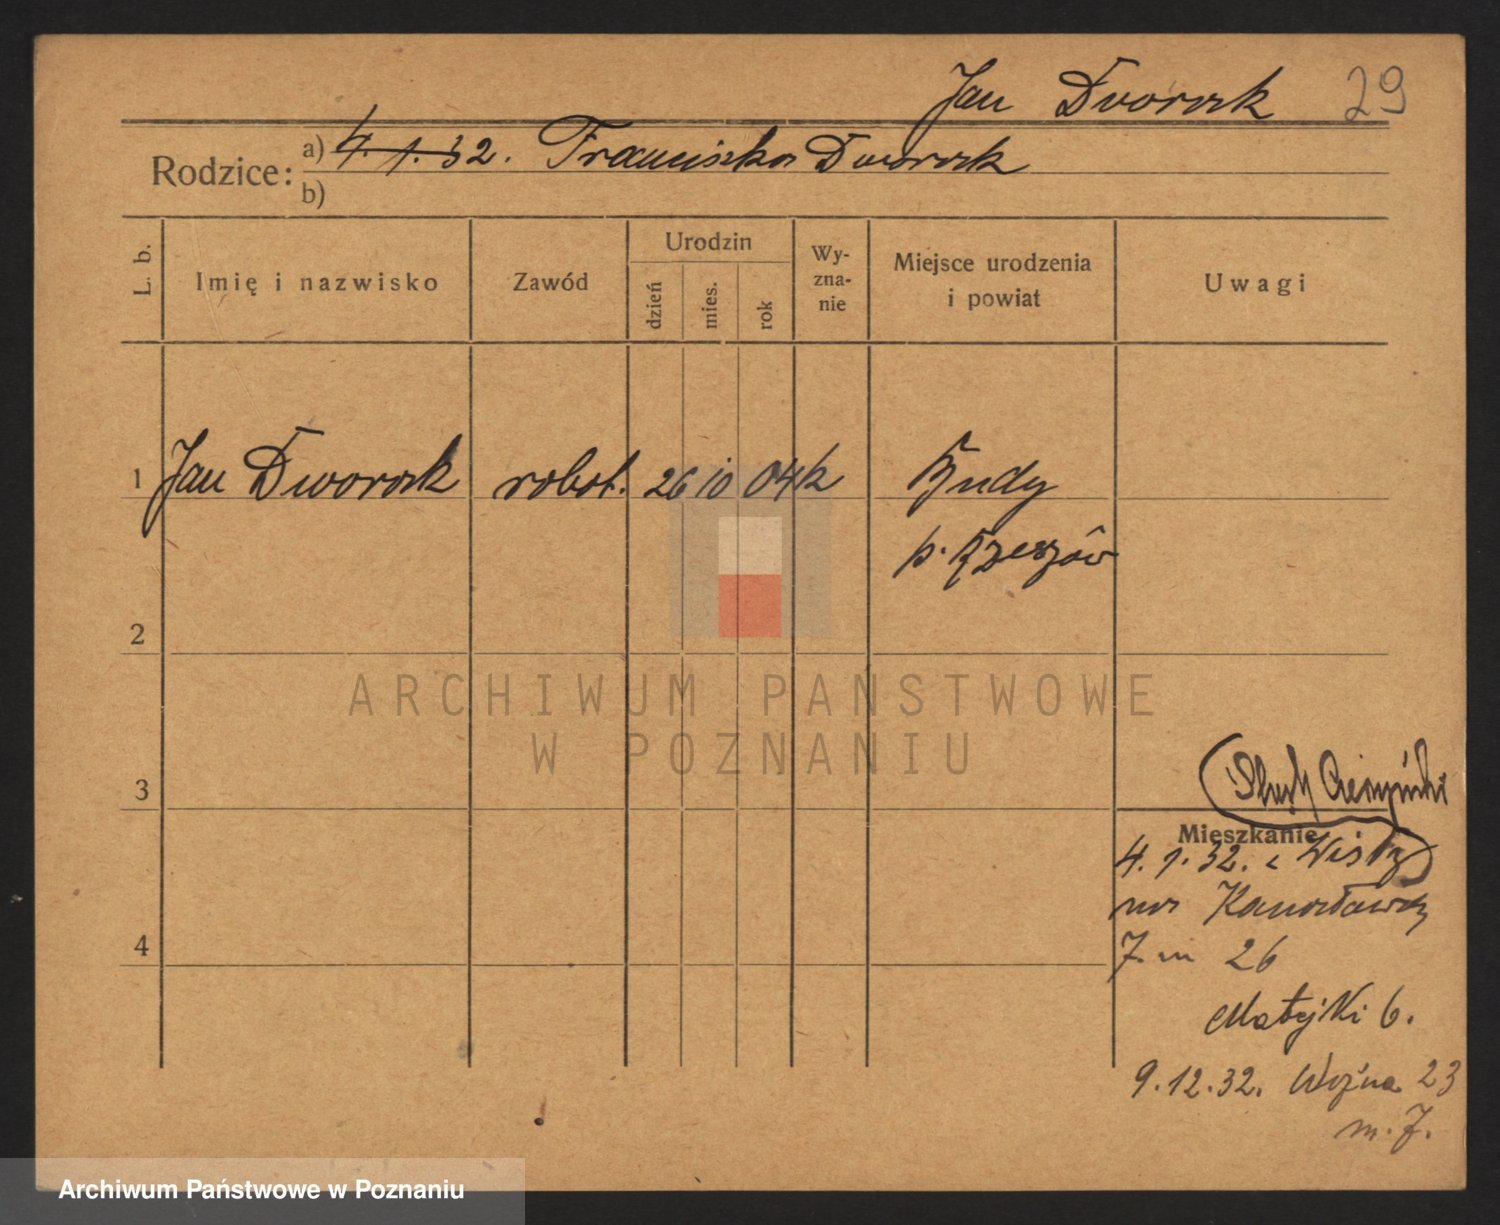 Jan Dworak 29
Rodzice: a) 4.1.32. Franciszka Dworak
b)
L. b. Imię i nazwisko Zawód Urodzin dzień mies. rok Wy-zna-nie Miejsce urodzenia i powiat Uwagi
1 Jan Dworak robot. 26 10 04 k Budy
p. Rzeszów
2
ARCHIWUM PAŃSTWOWE
W POZNANIU
3
Mieszkanie
4.1.32. z
na
4
7. m 26
Matejki 6.
9.12.32. Woźna 23
m. 7.
Archiwum Państwowe w Poznaniu